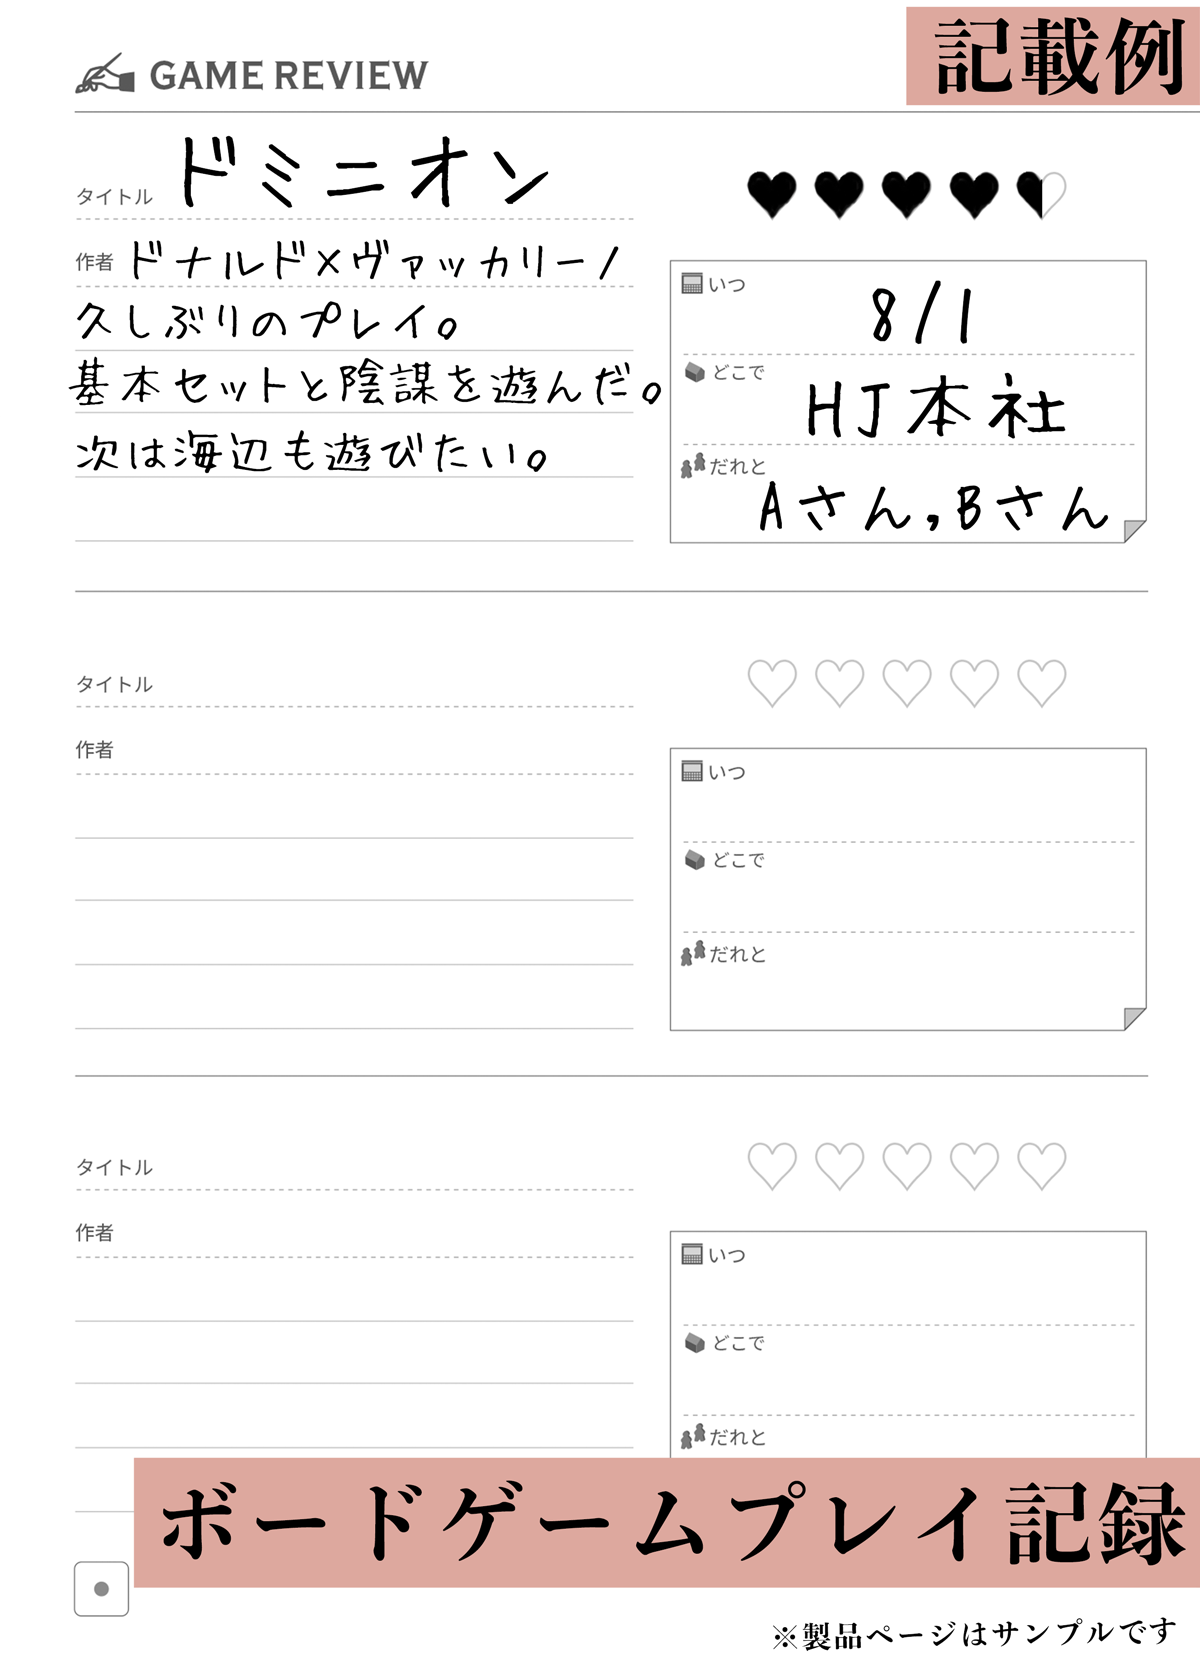 記載例
GAME REVIEW
タイトル ドミニオン
作者 ドナルド×ヴァッカリーノ
久しぶりのプレイ。
基本セットと陰謀を遊んだ。
次は海辺も遊びたい。
いつ
8/1
どこで
HJ本社
だれと
Aさん,Bさん
タイトル
作者
いつ
どこで
だれと
タイトル
作者
いつ
どこで
だれと
ボードゲームプレイ記録
※製品ページはサンプルです